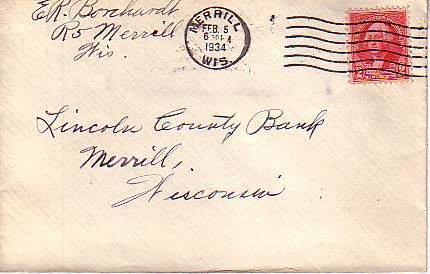 E.R. Borchardt
R5 Merrill
Wis.
MERRILL
FEB. 5
1934
WIS.
Lincoln County Bank
Merrill,
Wisconsin